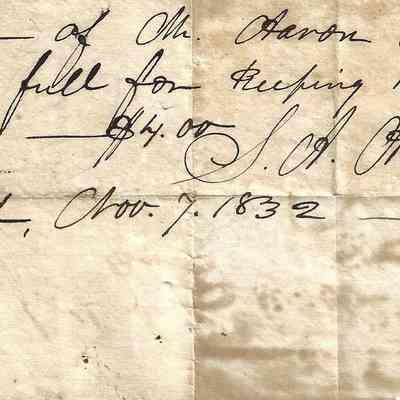 of Mr. Aaron
full for Keeping
$4.00
S. A.
Nov. 7. 1832